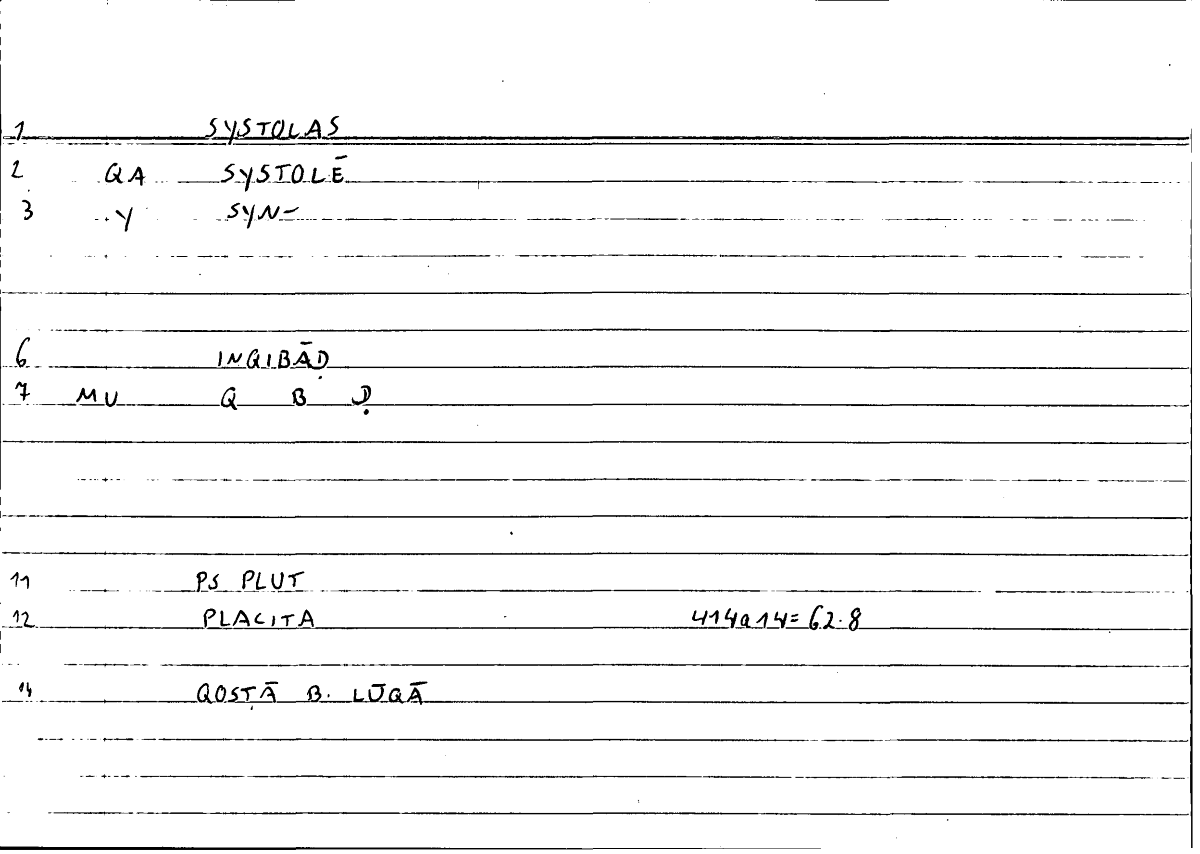 1 SYSTOLAS
2 QA SYSTOLĒ
3 Y SYN-
6 INQIBĀḌ
7 MU Q B Ḍ
11 PS PLUT
12 PLACITA 414a14=62.8
14 QOSṬĀ B. LŪQĀ